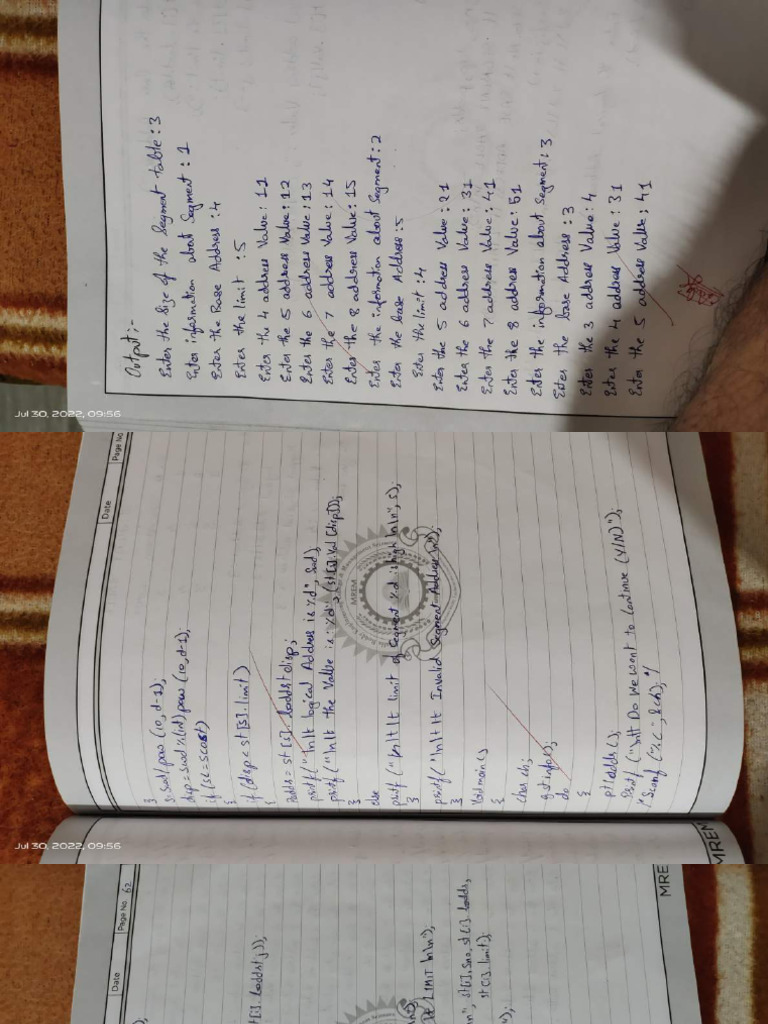 Output:-
Enter the Size of the Segment table : 3
Enter information about Segment : 1
Enter the Base Address : 4
Enter the limit : 5
Enter the 4 address Value : 11
Enter the 5 address Value : 12
Enter the 6 address Value : 13
Enter the 7 address Value : 14
Enter the 8 address Value : 15
Enter the information about Segment : 2
Enter the base Address : 5
Enter the limit : 4
Enter the 5 address Value : 21
Enter the 6 address Value : 31
Enter the 7 address Value : 41
Enter the 8 address Value : 51
Enter the information about Segment : 3
Enter the base Address : 3
Enter the 3 address Value : 4
Enter the 4 address Value : 31
Enter the 5 address Value ; 41
Jul 30, 2022, 09:56
Date
Page No
}
swd/pow (10, d-1);
disp = swd % (int) pow (10, d-1);
{
if (disp < st [s]. limit)
{
= st [s]. baddst disp;
printf ("\n\t logical Address is %d",
printf ("\n\t the Value is : %d",
}
else
printf ("\n\t\t limit of Segment %d is high \n\n", s);
}
printf ("\n\t\t Invalid Segment Address \n");
}
Void main ( )
{
char ch;
getinfo ( );
do
{
Printf ("\n\t Do we want to Continue (Y/N)");
MREM
Jul 30, 2022, 09:56
MREM
Date
Page No. 62
LIMIT \n\n");
st [i]. limit);
MRE